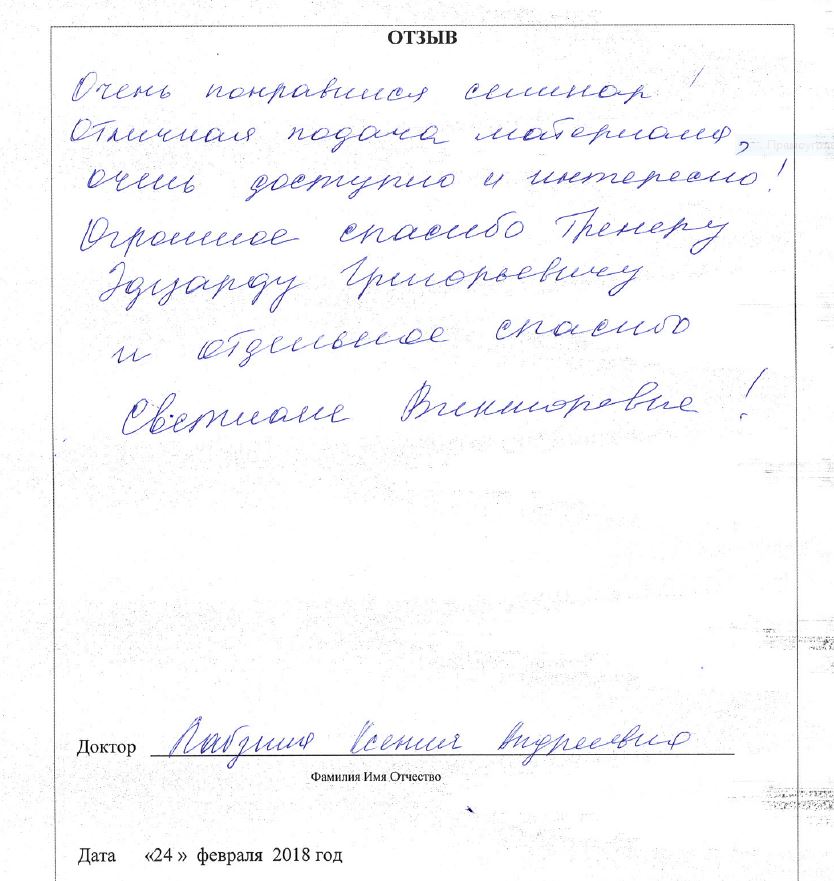 ОТЗЫВ
Очень понравился семинар !
Отличная подача материала,
очень доступно и интересно!
Огромное спасибо Тренеру
Эдуарду Григорьевичу
и отдельное спасибо
Светлане Викторовне !
Доктор Ксения Андреевна
Фамилия Имя Отчество
Дата «24 » февраля 2018 год